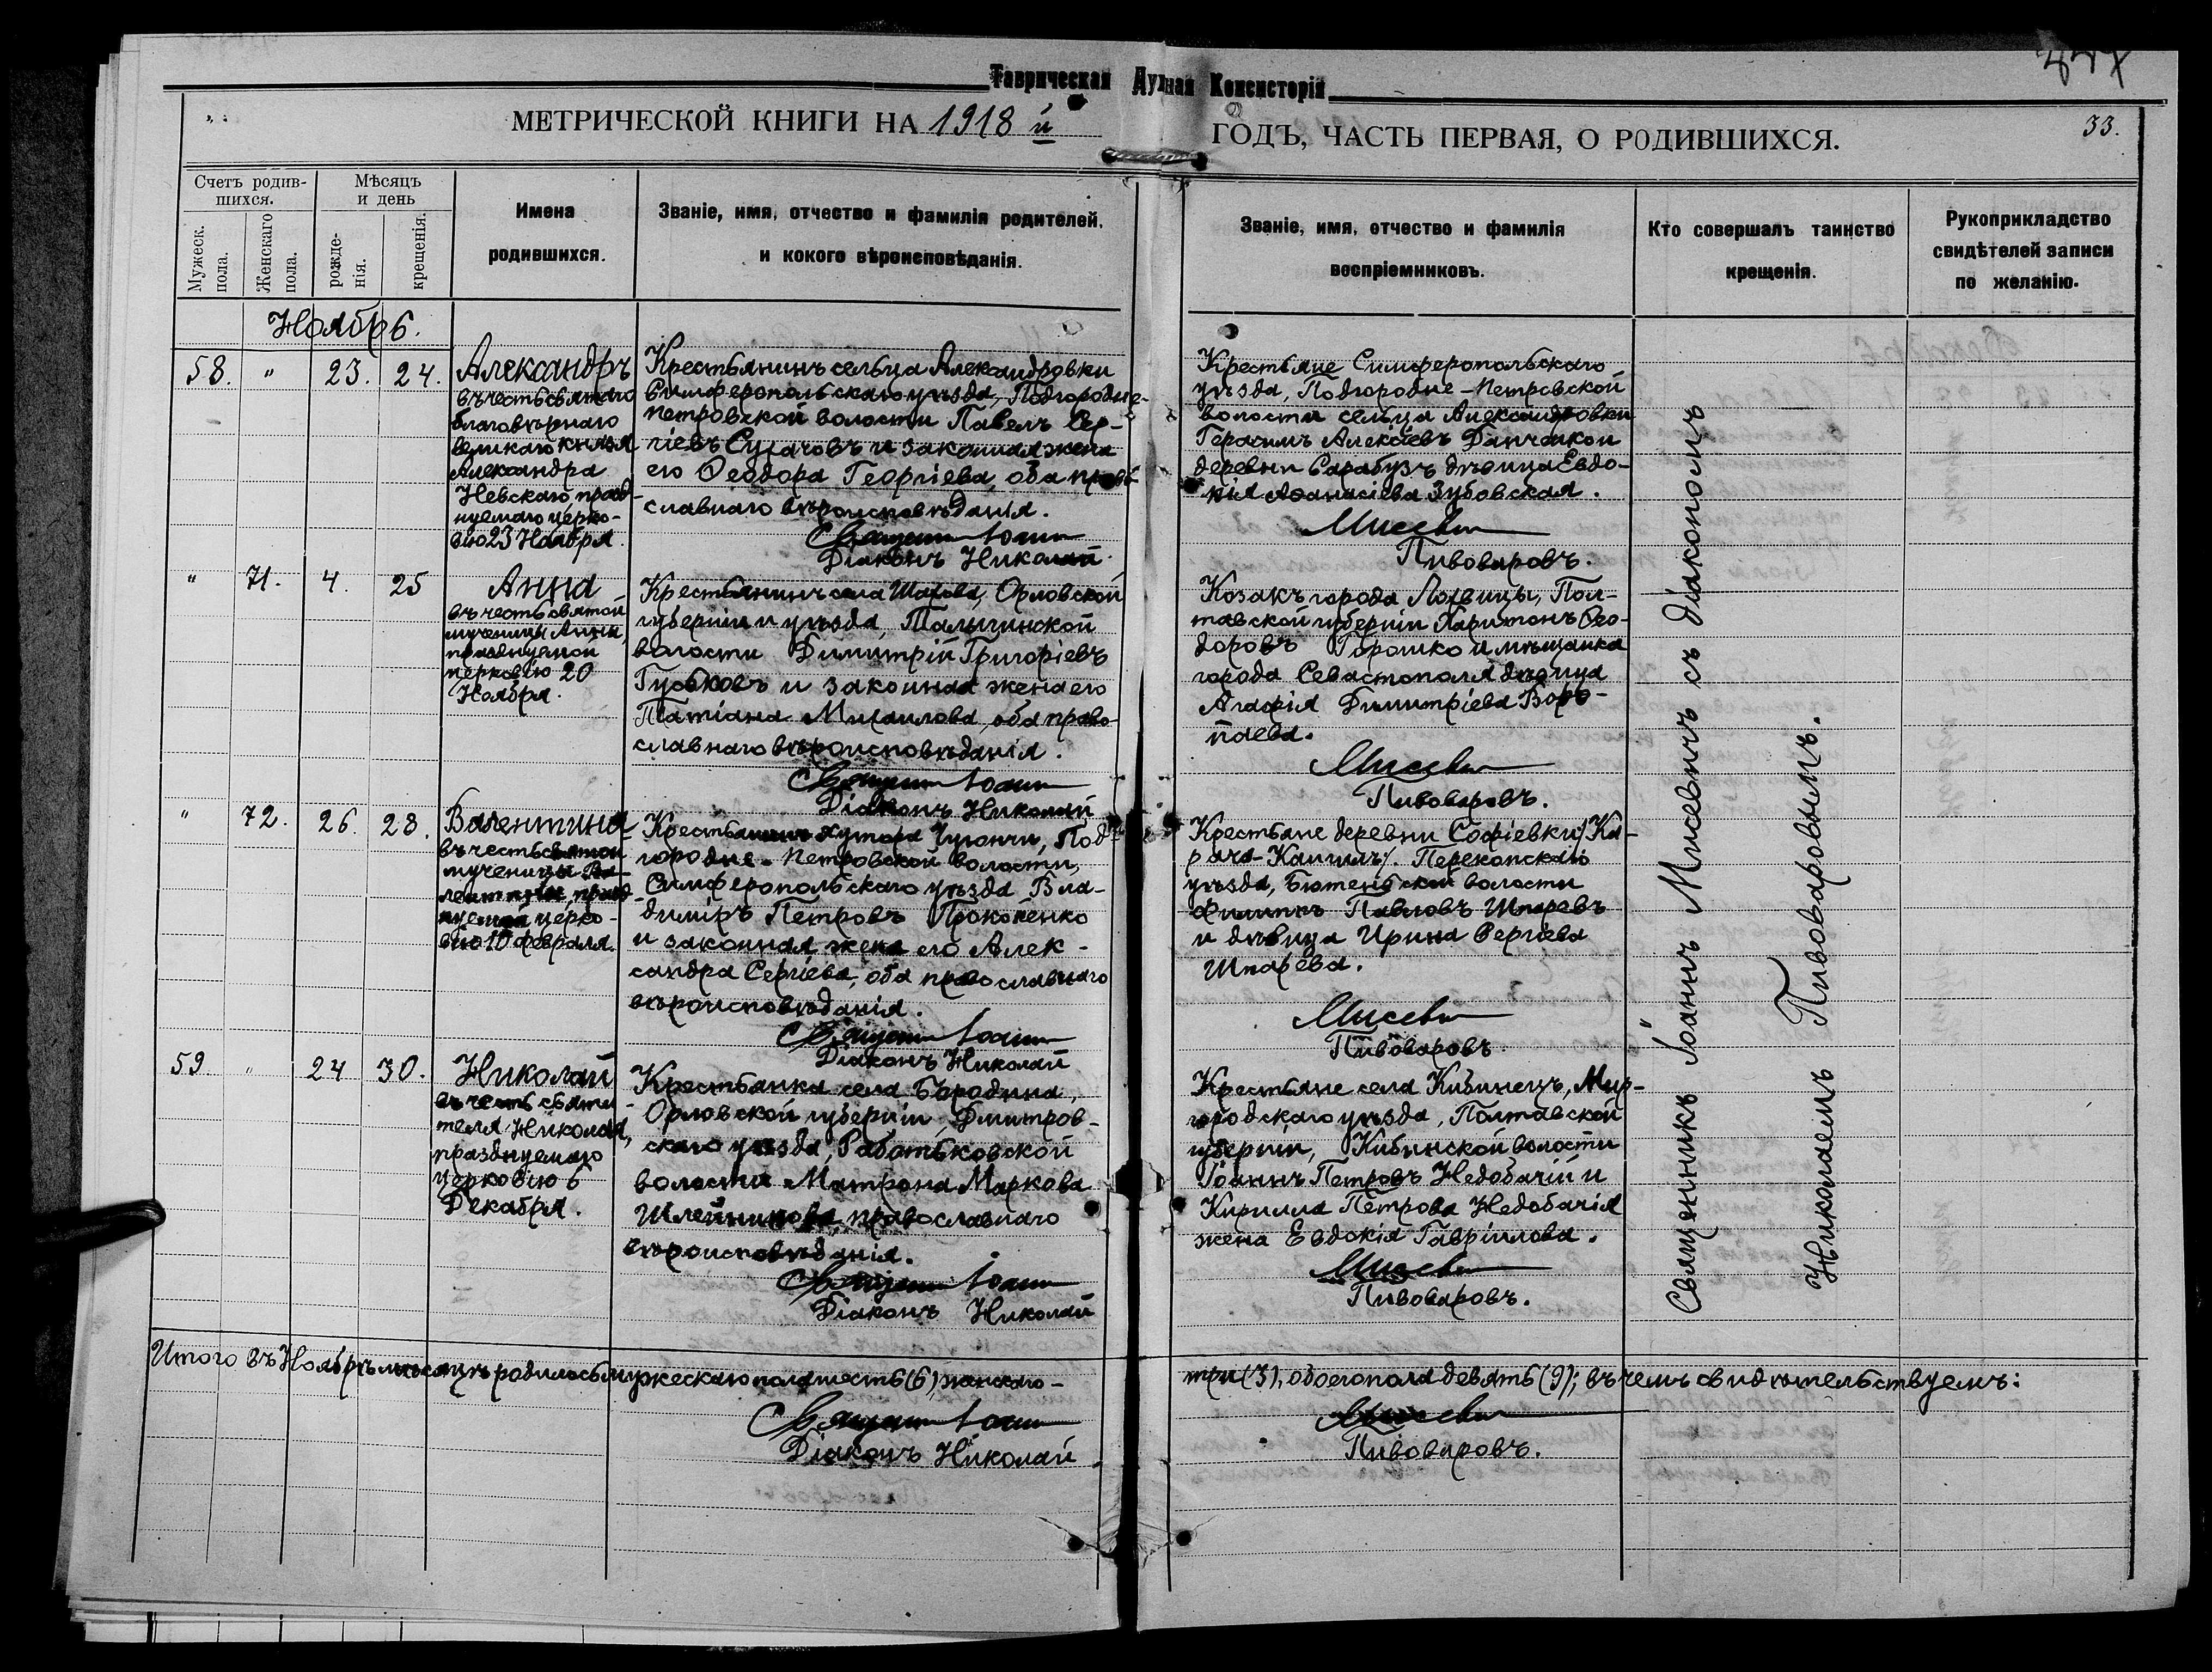 Таврическая Духная Консисторія
МЕТРИЧЕСКОЙ КНИГИ НА 1918 й ГОДЪ, ЧАСТЬ ПЕРВАЯ, О РОДИВШИХСЯ.
33.
Счетъ родив-
шихся.
Мужеск.
пола.
Женскаго
пола.
Мѣсяцъ
и день
рожде-
нія.
крещенія.
Имена
родившихся.
Званіе, имя, отчество и фамилія родителей,
и кокого вѣроисповѣданія.
Званіе, имя, отчество и фамилія
воспріемниковъ.
Кто совершалъ таинство
крещенія.
Рукоприкладство
свидѣтелей записи
по желанію.
Ноябрь.
58. " 23. 24.
Александръ
въ честь святаго
благовѣрнаго
великаго князя
Александра
Невскаго, празд-
нуемаго церко-
вію 23 Ноября.
Крестьянинъ сельца Александровки
Симферопольскаго уѣзда, Подгородне-
Петровской волости Павелъ Сер-
гіевъ и законная жена
его Ѳеодора Георгіева, оба право-
славнаго вѣроисповѣданія.
Священн Іоанн
Діаконъ Николай
Крестьяне Симферопольскаго
уѣзда, Подгородне-Петровской
волости сельца Александровки
Герасимъ Алексѣевъ и
деревни Сарабузъ дѣвица Евдо-
кія Аѳанасіева Зубовская.
Мисевич
Пивоваровъ.
" 71. 4. 25
Анна
въ честь святой
мученицы Анны,
празднуемой
церковію 20
Ноября.
Крестьянинъ села Шахова, Орловской
губерніи и уѣзда,
волости Димитрій Григоріевъ
Гуськовъ и законная жена его
Татіана Михаилова, оба право-
славнаго вѣроисповѣданія.
Священн Іоанн
Діаконъ Николай
Козакъ города Лохвицы, Пол-
тавской губерніи Харитонъ Ѳео-
доровъ Горошко и мѣщанка
города Севастополя дѣвица
Агафія Димитріева Воро-
паева.
Мисевич
Пивоваровъ.
" 72. 26. 28.
Валентина
въ честь святой
мученицы Ва-
лентины, празд-
нуемой церко-
вію 10 февраля.
Крестьянинъ хутора Под-
городне-Петровской волости,
Симферопольскаго уѣзда Вла-
диміръ Петровъ Прокопенко
и законная жена его Алек-
сандра Сергіева, оба православнаго
вѣроисповѣданія.
Священн Іоанн
Діаконъ Николай
Крестьяне деревни Софіевки /Ка-
рача-Кангилъ/. Перекопскаго
уѣзда, волости
Филиппъ Павловъ Шпаревъ
и дѣвица Ирина Сергіева
Шпарева.
Мисевич
Пивоваровъ
59 " 24 30.
Николай
въ честь святи-
теля Николая,
празднуемаго
церковію 6
Декабря.
Крестьянка села Бородина,
Орловской губерніи, Дмитров-
скаго уѣзда, Работьковской
волости Матрона Маркова
Шлейникова, православнаго
вѣроисповѣданія.
Священн Іоанн
Діаконъ Николай
Крестьяне села Кибинецъ, Мир-
городскаго уѣзда, Полтавской
губерніи, Кибинской волости
Іоаннъ Петровъ Недобачій и
Кирилла Петрова Недобачія
жена Евдокія Гавріилова.
Мисевич
Пивоваровъ.
Священникъ Іоаннъ Мисевичъ съ діакономъ
Николаемъ Пивоваровымъ.
Итого въ Ноябрѣ мѣсяцѣ родилось мужескаго пола шесть (6), женскаго - три (3), обоего пола девять (9); въ чемъ свидѣтельствуемъ:
Священн Іоанн Мисевич
Діаконъ Николай Пивоваровъ.